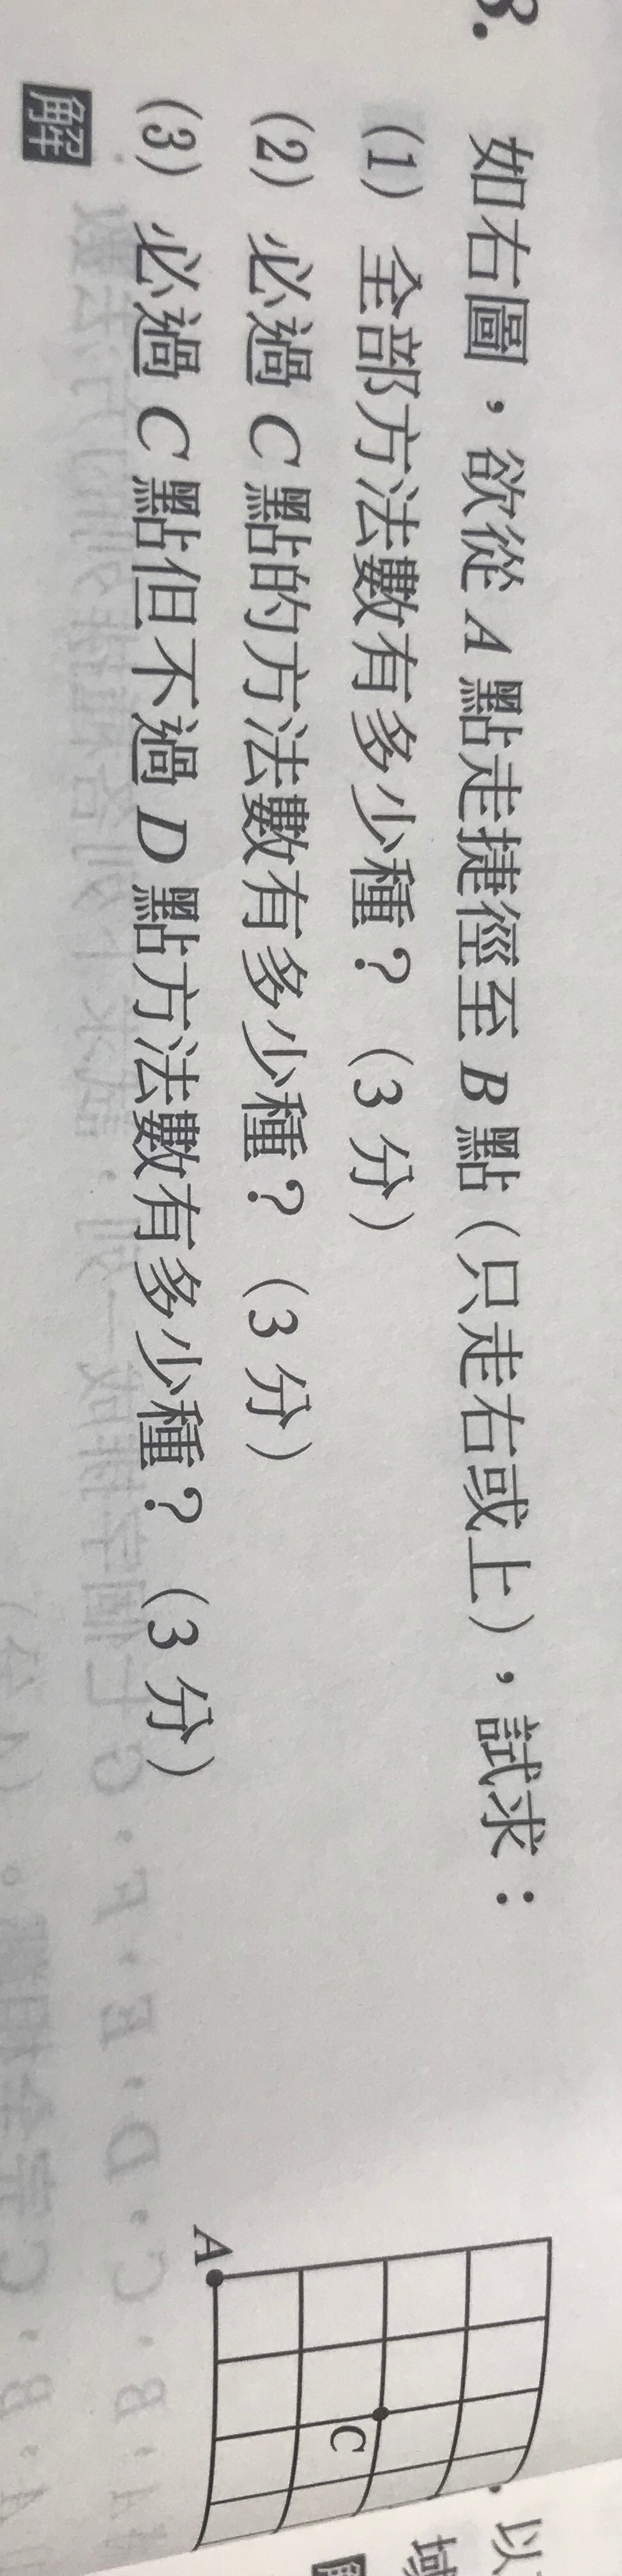 8.
如右圖，欲從 A 點走捷徑至 B 點（只走右或上），試求：
(1) 全部方法數有多少種？（3 分）
(2) 必過 C 點的方法數有多少種？（3 分）
(3) 必過 C 點但不過 D 點方法數有多少種？（3 分）
解
A
C
以
域